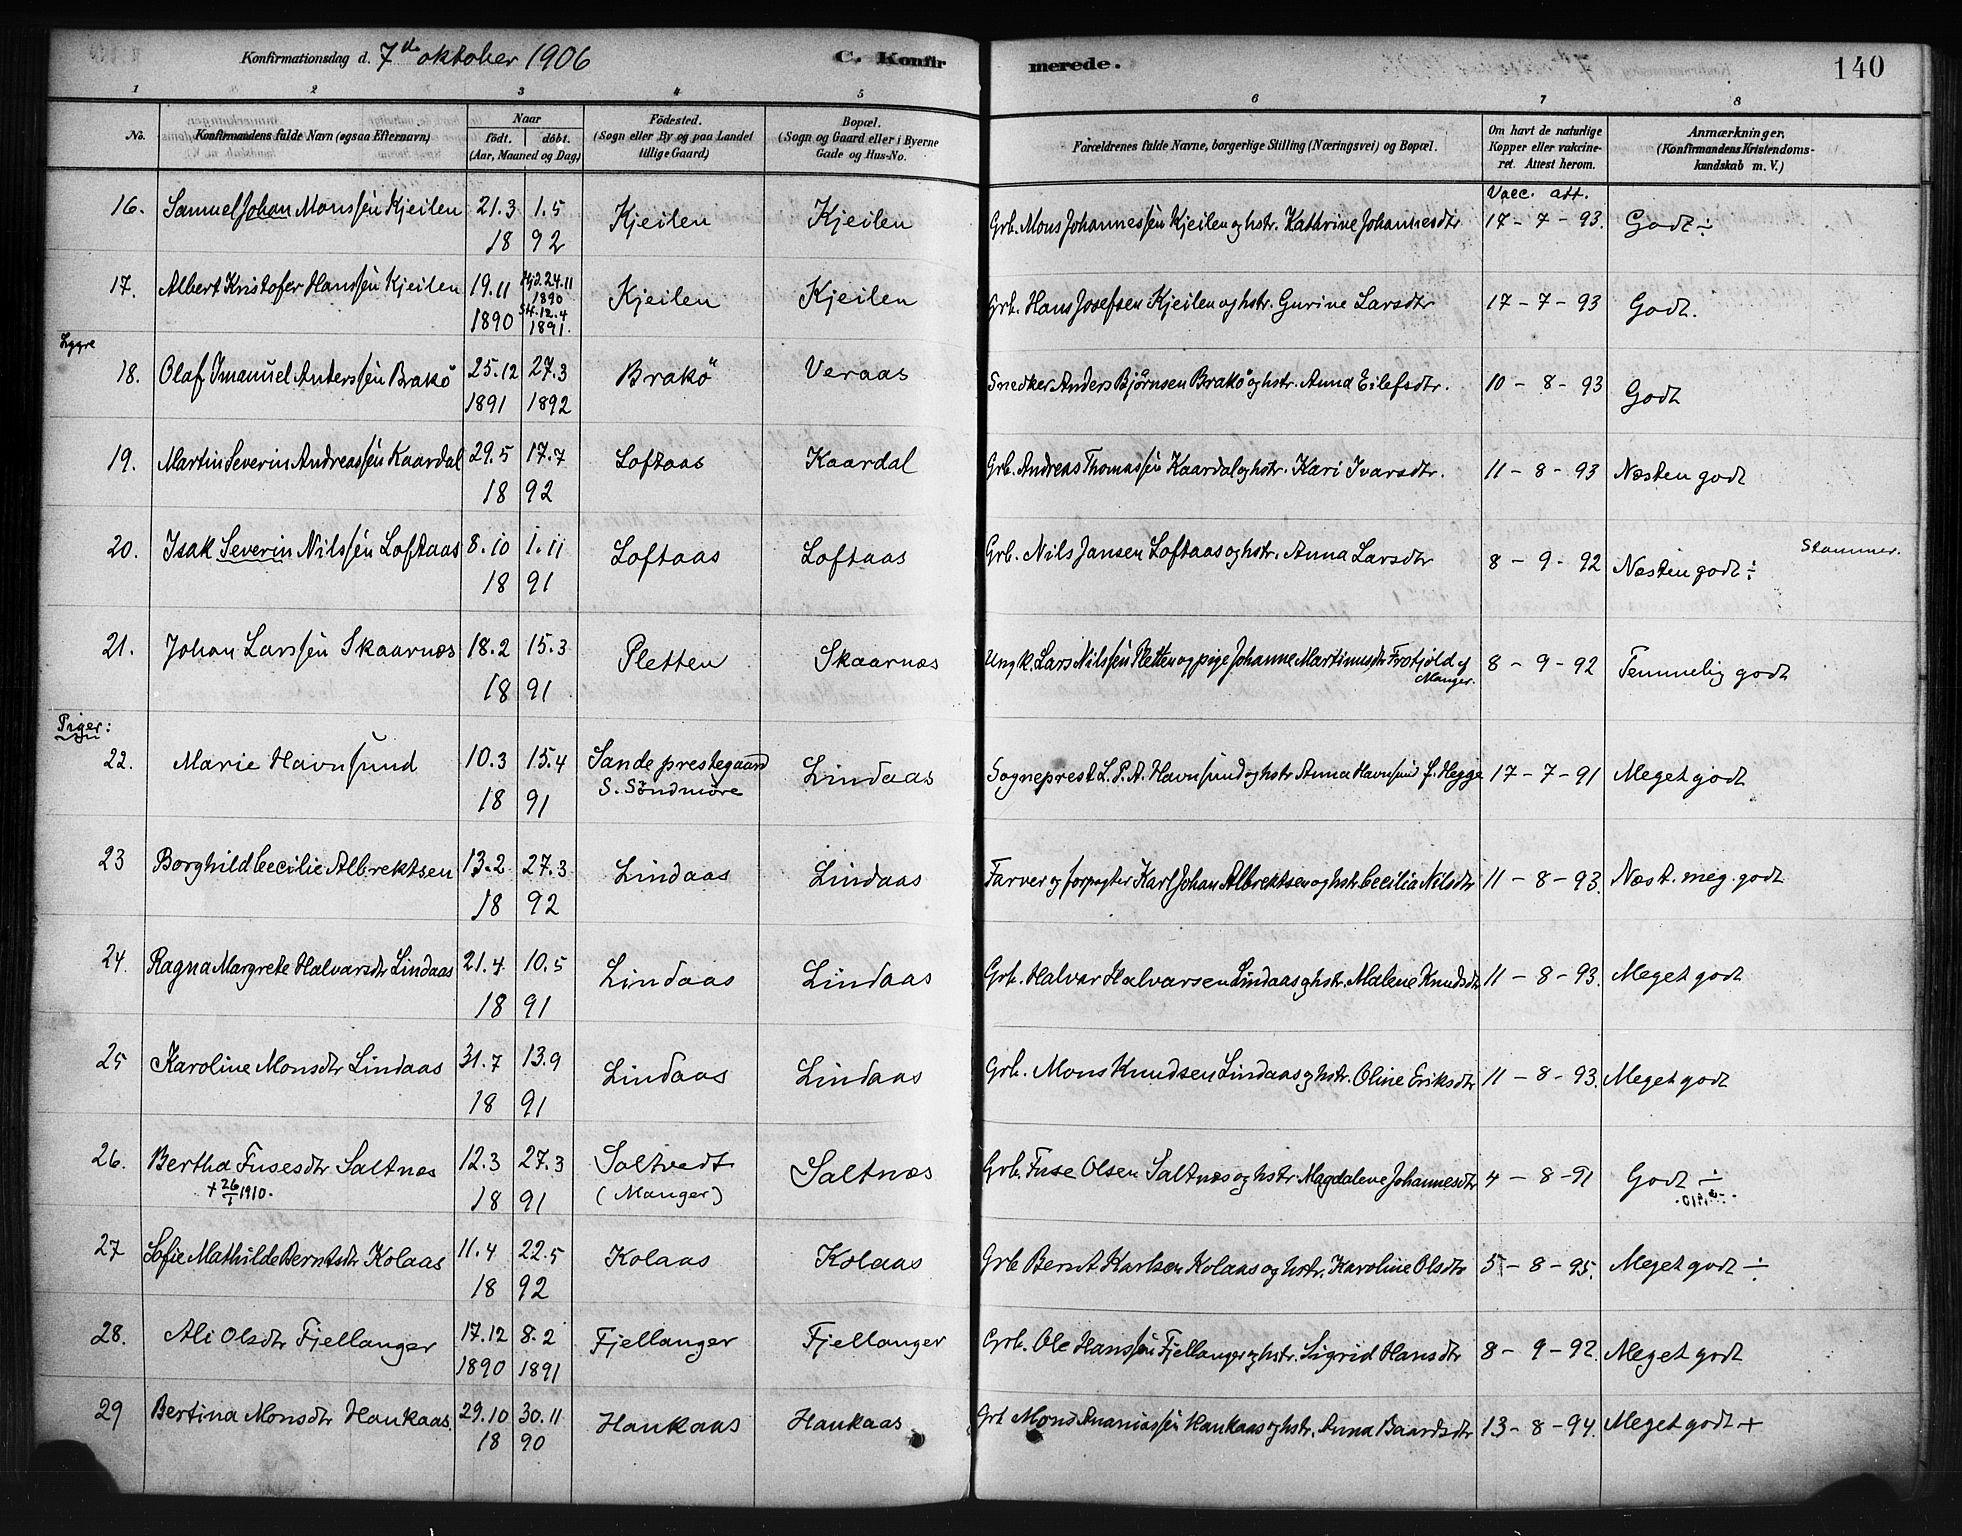 Konfirmationsdag d. 7de oktober 1906 C. Konfirmerede. 140
1 2 3 4 5 6 7 8
No. Konfirmandens fulde Navn (ogsaa Efternavn) Naar født. døbt. (Aar, Maaned og Dag) Fødested. (Sogn eller By og paa Landet tillige Gaard) Bopæl. (Sogn og Gaard eller i Byerne Gade og Hus-No. Forældrenes fulde Navne, borgerlige Stilling (Næringsvei) og Bopæl. Om havt de naturlige Kopper eller vakcineret. Attest herom. Anmærkninger, (Konfirmandens Kristendomskundskab m. V.)
Vacc. att.
16. Samuel Johan Monssen Kjeilen 21.3 1.5 Kjeilen Kjeilen Grb. Mons Johannessen Kjeilen og hstr. Kathrine Johannesdtr 17-7-93. Godt ÷
18 92
17. Albert Kristofer Hanssen Kjeilen 19.11 Hjd. 24.11 Kjeilen Kjeilen Grb. Hans Josefsen Kjeilen og hstr. Gurine Larsdtr 17-7-93 Godt.
1890 1890 St. 12.4 1891.
Lygre
18. Olaf Imanuel Anderssen Brakö 25.12 27.3 Brakö Veraas Snedker Anders Bjørnsen Brakö og hstr. Anna Eilefsdtr. 10-8-93 Godt
1891 1892
19. Martin Severin Andreassen Kaardal 29.5 17.7 Loftaas Kaardal Grb. Andreas Thomassen Kaardal og hstr. Kari Ivarsdtr. 11-8-93 Næsten godt
18 92
20. Isak Severin Nilssen Loftaas 8.10 1.11 Loftaas Loftaas Grb. Nils Jansen Loftaas og hstr. Anna Larsdtr 8-9-92 Næsten godt ÷ Stammer.
18 91
21. Johan Larssen Skaarnæs 18.2 15.3 Pletten Skaarnæs Ungk. Lars Nilssen Pletten og pige Johanne Martinusdtr Frotjold af Manger. 8-9-92 Temmelig godt
18 91
Piger:
22. Marie Havnsund 10.3 15.4 Sande prestegaard S. Söndmöre Lindaas Sogneprest L. P. A. Havnsund og hstr Anna Havnsund f. Hegge 17-7-91 Meget godt
18 91
23 Borghild Cecilie Albrektsen 13.2 27.3 Lindaas Lindaas Farver og forpagter Karl Johan Albrektsen og hstr Cecilia Nilsdtr 11-8-93. Næst. meg. godt
18 92
24. Ragna Margrete Halvarsdtr Lindaas 21.4 10.5 Lindaas Lindaas Grb. Halvar Halvarsen Lindaas og hstr. Malene Knudsdtr 11-8-93. Meget godt
18 91
25 Karoline Monsdtr Lindaas 31.7 13.9 Lindaas Lindaas Grb. Mons Knudsen Lindaas og hstr. Oline Eriksdtr 11-8-93. Meget godt
18 91
26. Bertha Fusesdtr Saltnes 12.3 27.3 Saltvedt (Manger) Saltnæs Grb. Fuse Olsen Saltnæs og hstr Magdalene Johannesdtr 4-8-91 Godt ÷
+ 26/1 1910. 18 91
27 Sofie Mathilde Berntsdtr Kolaas 11.4 22.5 Kolaas Kolaas Grb Bernt Karlsen Kolaas og hstr. Karoline Olsdtr 5-8-95. Meget godt ÷
18 92
28. Ali Olsdtr Fjellanger 17.12 8.2 Fjellanger Fjellanger Grb. Ole Hanssen Fjellanger og hstr. Sigrid Hansdtr 8-9-92. Meget godt
1890 1891
29 Bertina Monsdtr Haukaas. 29.10 30.11 Haukaas Haukaas Grb Mons Ananiassen Haukaas og hstr. Anna Baardsdtr 13-8-94. Meget godt +
18 90